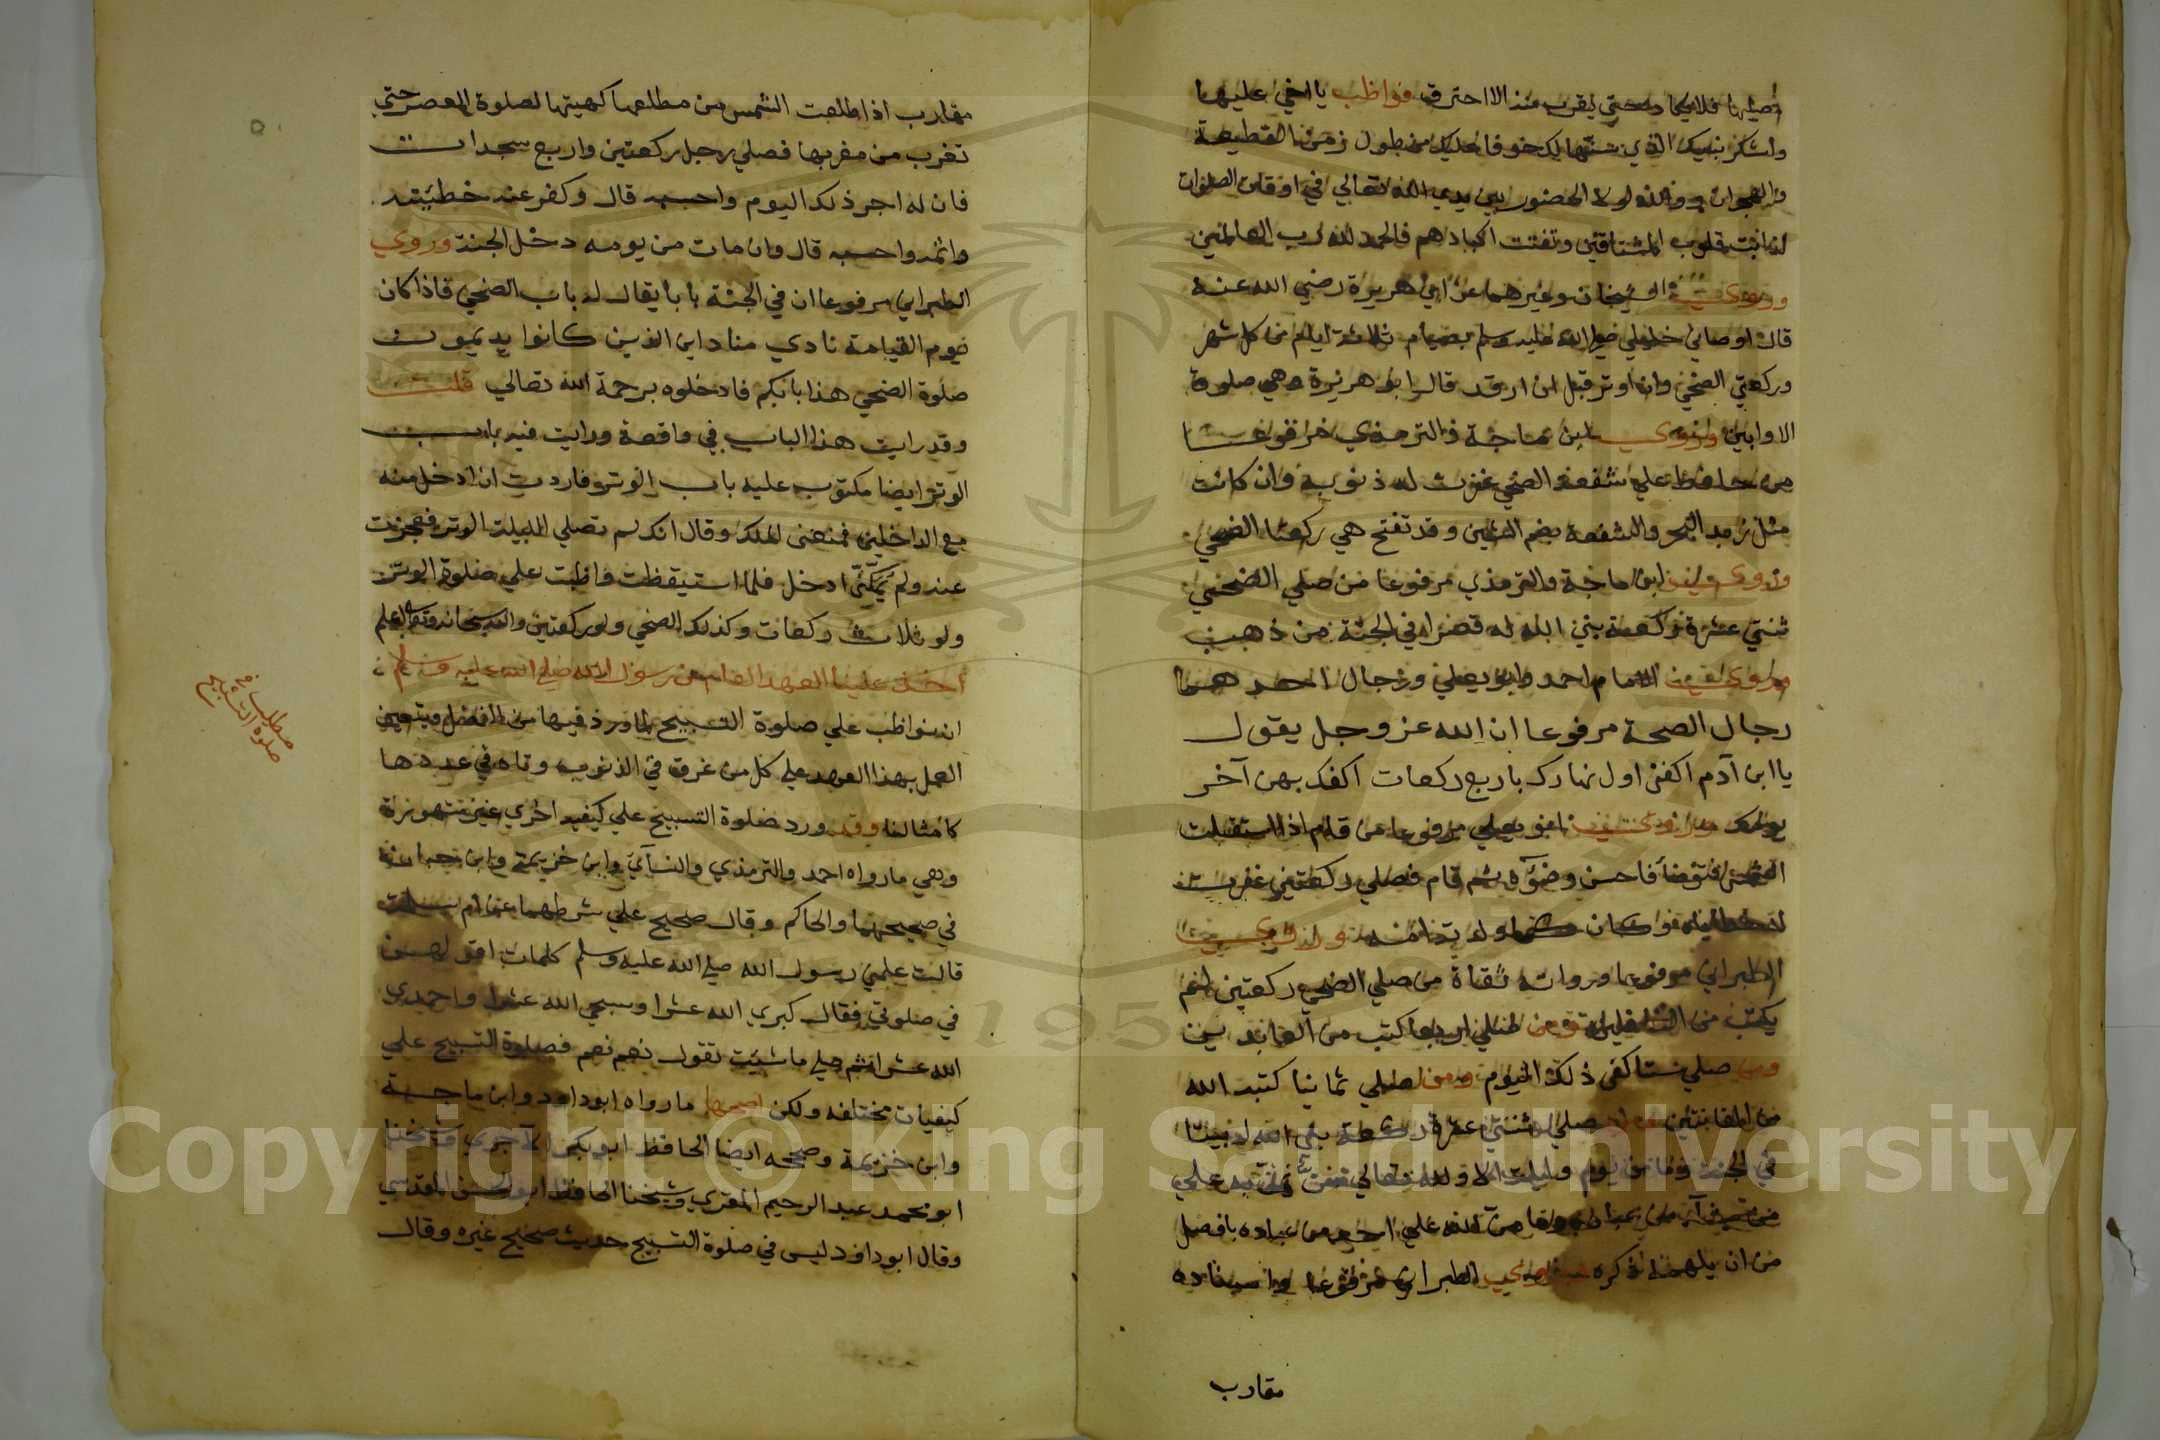 اصليها فلا يكاد جني يقرب مند الا احترق فواظب يا اخي عليها
واشكر نبيك الذي سنها لك خوفا عليك من طول زمن القطيعة
والهجران ووالله لولا الحضور بين يدي الله تعالي في اوقات الصلوات
لذابت قلوب المشتاقين وتفتت اكبادهم فالحمد لله رب العالمين
الشيخان وغيرهما عن ابي هريرة رضي الله عنه
قال اوصاني خليلي صلي الله عليه وسلم بصيام ثلاثة ايام من كل شهر
وركعتي الضحي وان اوتر قبل ان ارقد قال ابو هريرة وهي صلوة
الاوابين وروي ابن ماجة والترمذي مرفوعا
من حافظ علي شفعة الضحي غفرت له ذنوبه وان كانت
مثل زبد البحر والشفعة بضم الشين وقد تفتح هي ركعتا الضحي
وروي ابن ماجة والترمذي مرفوعا من صلي الضحي
ثنتي عشرة ركعة بني الله له قصرا في الجنة من ذهب
وروي الامام احمد وابو يعلي ورجال احدهما
رجال الصحة مرفوعا ان الله عز وجل يقول
يا ابن آدم اكفني اول نهارك باربع ركعات اكفك بهن آخر
يومك ابو يعلي مرفوعا من قام اذا استقبلت
الشمس فتوضأ فاحسن وضوءه ثم قام فصلي ركعتين غفرت
له خطاياه وكان كما ولدته امه وروي
الطبراني مرفوعا ورواته ثقاة من صلي الضحي ركعتين لم
يكتب من الغافلين ومن صلي اربعا كتب من العابدين
ومن صلي ستا كفي ذلك اليوم ومن صلي ثمانيا كتبه الله
من القانتين ومن صلي ثنتي عشرة ركعة بني الله له بيتا
في الجنة وما من يوم وليلة الا ولله تعالي من يمن به علي
من يشاء من عباده وما من الله علي احد من عباده بافضل
من ان يلهمه ذكره وروي الطبراني مرفوعا واسناده
مقارب
مقارب اذا طلعت الشمس من مطلعها كهيئتها لصلوة العصر حتي
تغرب من مغربها فصلي رجل ركعتين واربع سجدات
فان له اجر ذلك اليوم واحسبه قال وكفر عنه خطيئته
واثمه واحسبه قال وان مات من يومه دخل الجنة وروي
الطبراني مرفوعا ان في الجنة بابا يقال له باب الضحي فاذا كان
يوم القيامة نادي مناد اين الذين كانوا يديمون
صلوة الضحي هذا بابكم فادخلوه برحمة الله تعالي قلت
وقد رايت هذا الباب في واقعة ورايت فيه باب
الوتر ايضا مكتوب عليه باب الوتر فاردت ان ادخل منه
مع الداخلين فمنعني الملك وقال انك لم تصلي الليلة الوتر فعجزت
عنه ولم يمكّنّي ادخل فلما استيقظت واظبت علي صلوة الوتر
ولو ثلاث ركعات وكذلك الضحي ولو ركعتين والله سبحانه وتعالي اعلم
اخذ علينا العهد العام من رسول الله صلي الله عليه وسلم
ان نواظب علي صلوة التسبيح لما ورد فيها من الفضل ويتعين
العمل بهذا العهد علي كل من غرق في الذنوب وتاه في عددها
كامثالنا وقد ورد صلوة التسبيح علي كيفية اخري غير مشهورة
وهي ما رواه احمد والترمذي والنسآئي وابن خزيمة وابن حبان
في صحيحهما والحاكم وقال صحيح علي شرطهما عن ام سلمة
قالت علمني رسول الله صلي الله عليه وسلم كلمات اقولهن
في صلوتي فقال كبري الله عشرا وسبحي الله عشرا واحمدي
الله عشرا ثم صلي ما شئت تقول نعم نعم فصلوة التسبيح علي
كيفيات مختلفة ولكن اصحها ما رواه ابو داود وابن ماجة
وابن خزيمة وصححه ايضا الحافظ ابو بكر الآجري وشيخنا
ابو محمد عبد الرحيم المقري وشيخنا الحافظ ابو الحسن المقدسي
وقال ابو داود ليس في صلوة التسبيح حديث صحيح غيره وقال
مطلب
صلوة التسابيح
Copyright © King Saud University
195